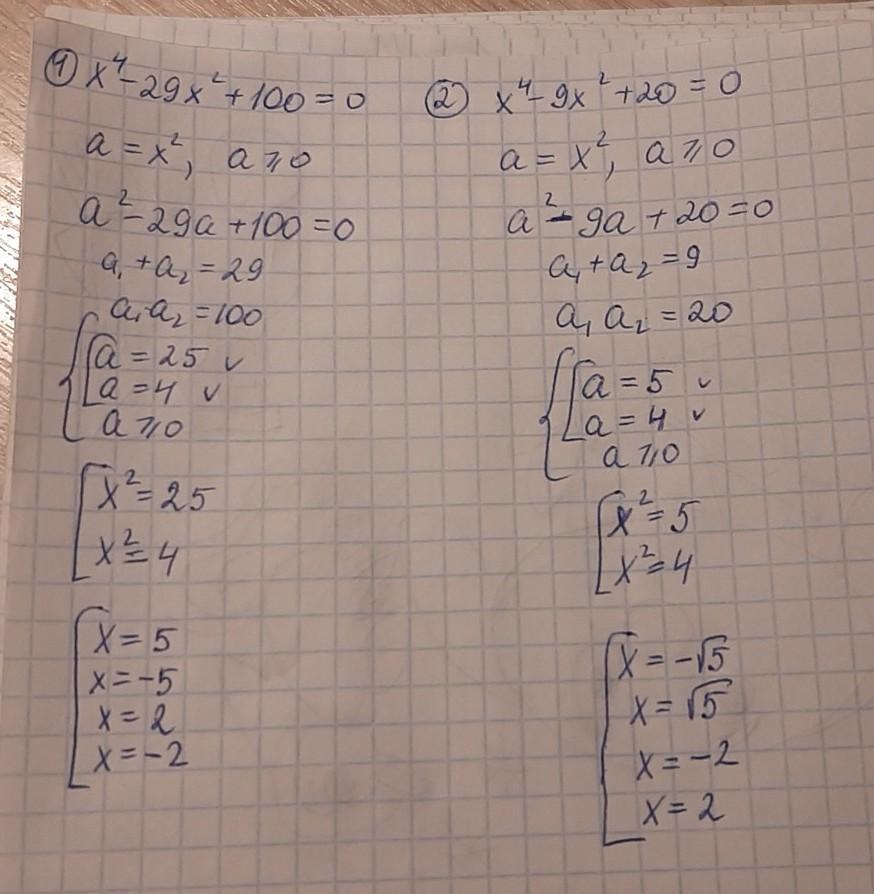 ① x⁴-29x²+100=0
a=x², a⩾0
a²-29a+100=0
a₁+a₂=29
a₁·a₂=100
a=25 ✓
a=4 ✓
a⩾0
x²=25
x²=4
x=5
x=-5
x=2
x=-2
② x⁴-9x²+20=0
a=x², a⩾0
a²-9a+20=0
a₁+a₂=9
a₁a₂=20
a=5 ✓
a=4 ✓
a⩾0
x²=5
x²=4
x=-√5
x=√5
x=-2
x=2